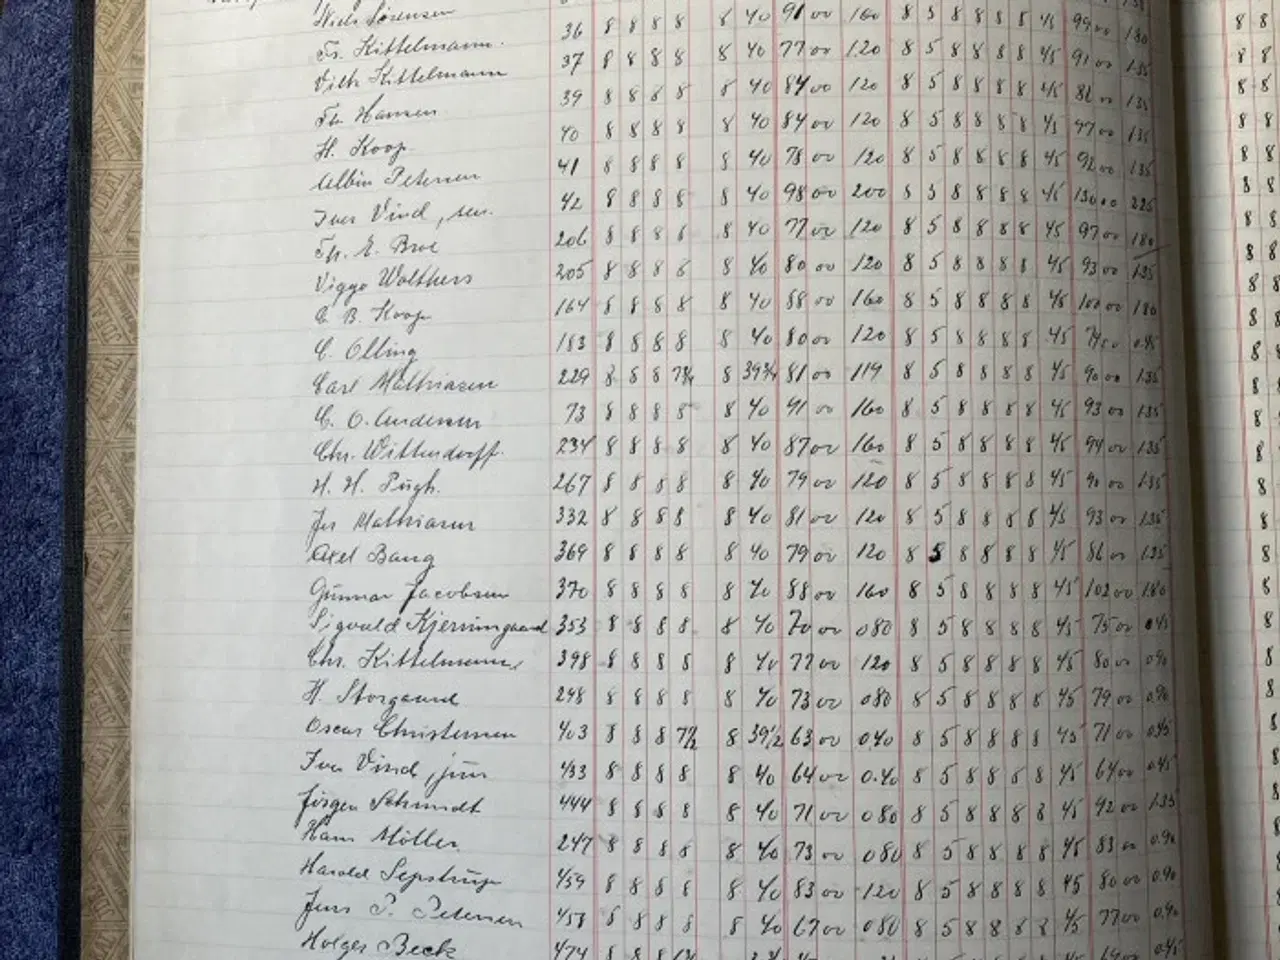 Sørensen 36 8 8 8 8 8 40 91 00 160 8 5 8 8 8 8 45 99 00 180
Fr. Kittelmann. 37 8 8 8 8 8 40 77 00 120 8 5 8 8 8 8 45 91 00 135
Kittelmann 39 8 8 8 8 8 40 84 00 120 8 5 8 8 8 8 45 00 135
Hansen 40 8 8 8 8 8 40 84 00 120 8 5 8 8 8 8 45 97 00 135
H. Koop 41 8 8 8 8 8 40 78 00 120 8 5 8 8 8 8 45 92 00 135
Albin Petersen 42 8 8 8 8 8 40 98 00 200 8 5 8 8 8 8 45 130 00 225
Iver Vind, sen. 206 8 8 8 8 8 40 77 00 120 8 5 8 8 8 8 45 97 00 180
E. Broe 205 8 8 8 8 8 40 80 00 120 8 5 8 8 8 8 45 93 00 135
Viggo Wolthers 164 8 8 8 8 8 40 88 00 160 8 5 8 8 8 8 45 100 00 180
C B. Koop 183 8 8 8 8 8 40 80 00 120 8 5 8 8 8 8 45 0.45
C. Olling 229 8 8 8 7¾ 8 39¾ 81 00 119 8 5 8 8 8 8 45 90 00 135
Carl Mathiasen 73 8 8 8 8 8 40 91 00 160 8 5 8 8 8 8 45 93 00 135
C. O. Andersen 234 8 8 8 8 8 40 87 00 160 8 5 8 8 8 8 45 94 00 135
Chr. Wittendorff. 267 8 8 8 8 8 40 79 00 120 8 5 8 8 8 8 45 90 00 135
H. H. Pügh. 332 8 8 8 8 8 40 81 00 120 8 5 8 8 8 8 45 93 00 135
Mathiasen 369 8 8 8 8 8 40 79 00 120 8 5 8 8 8 8 45 86 00 135
Axel Bang 370 8 8 8 8 8 40 88 00 160 8 5 8 8 8 8 45 102 00 180
Günnar Jacobsen 353 8 8 8 8 8 40 70 00 080 8 5 8 8 8 8 45 75 00 045
Sigvald Kjerumgaard 398 8 8 8 8 8 40 77 00 120 8 5 8 8 8 8 45 80 00 090
Chr. Kittelmann, 248 8 8 8 8 8 40 73 00 080 8 5 8 8 8 8 45 79 00 0.90
H. Storgaard 403 8 8 8 7½ 8 39½ 63 00 0.40 8 5 8 8 8 8 45 71 00 0.45
Oscar Christensen 433 8 8 8 8 8 40 64 00 0.40 8 5 8 8 8 8 45 64 00 0.45
Iver Vind, jün 444 8 8 8 8 8 40 71 00 080 8 5 8 8 8 8 45 92 00 1.35
Jörgen Schmidt 247 8 8 8 8 8 40 73 00 080 8 5 8 8 8 8 45 83 00 0.90
Hans Möller 459 8 8 8 8 8 40 83 00 120 8 5 8 8 8 8 45 80 00 0.90
Harald Sepstrup 458 8 8 8 8 8 40 67 00 080 8 5 8 8 8 8 45 77 00 0.90
Jens P. Petersen 474 8 8 8
Holger Beck